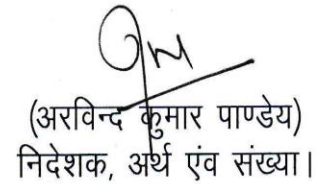 (अरविन्द कुमार पाण्डेय)
निदेशक, अर्थ एंव संख्या।